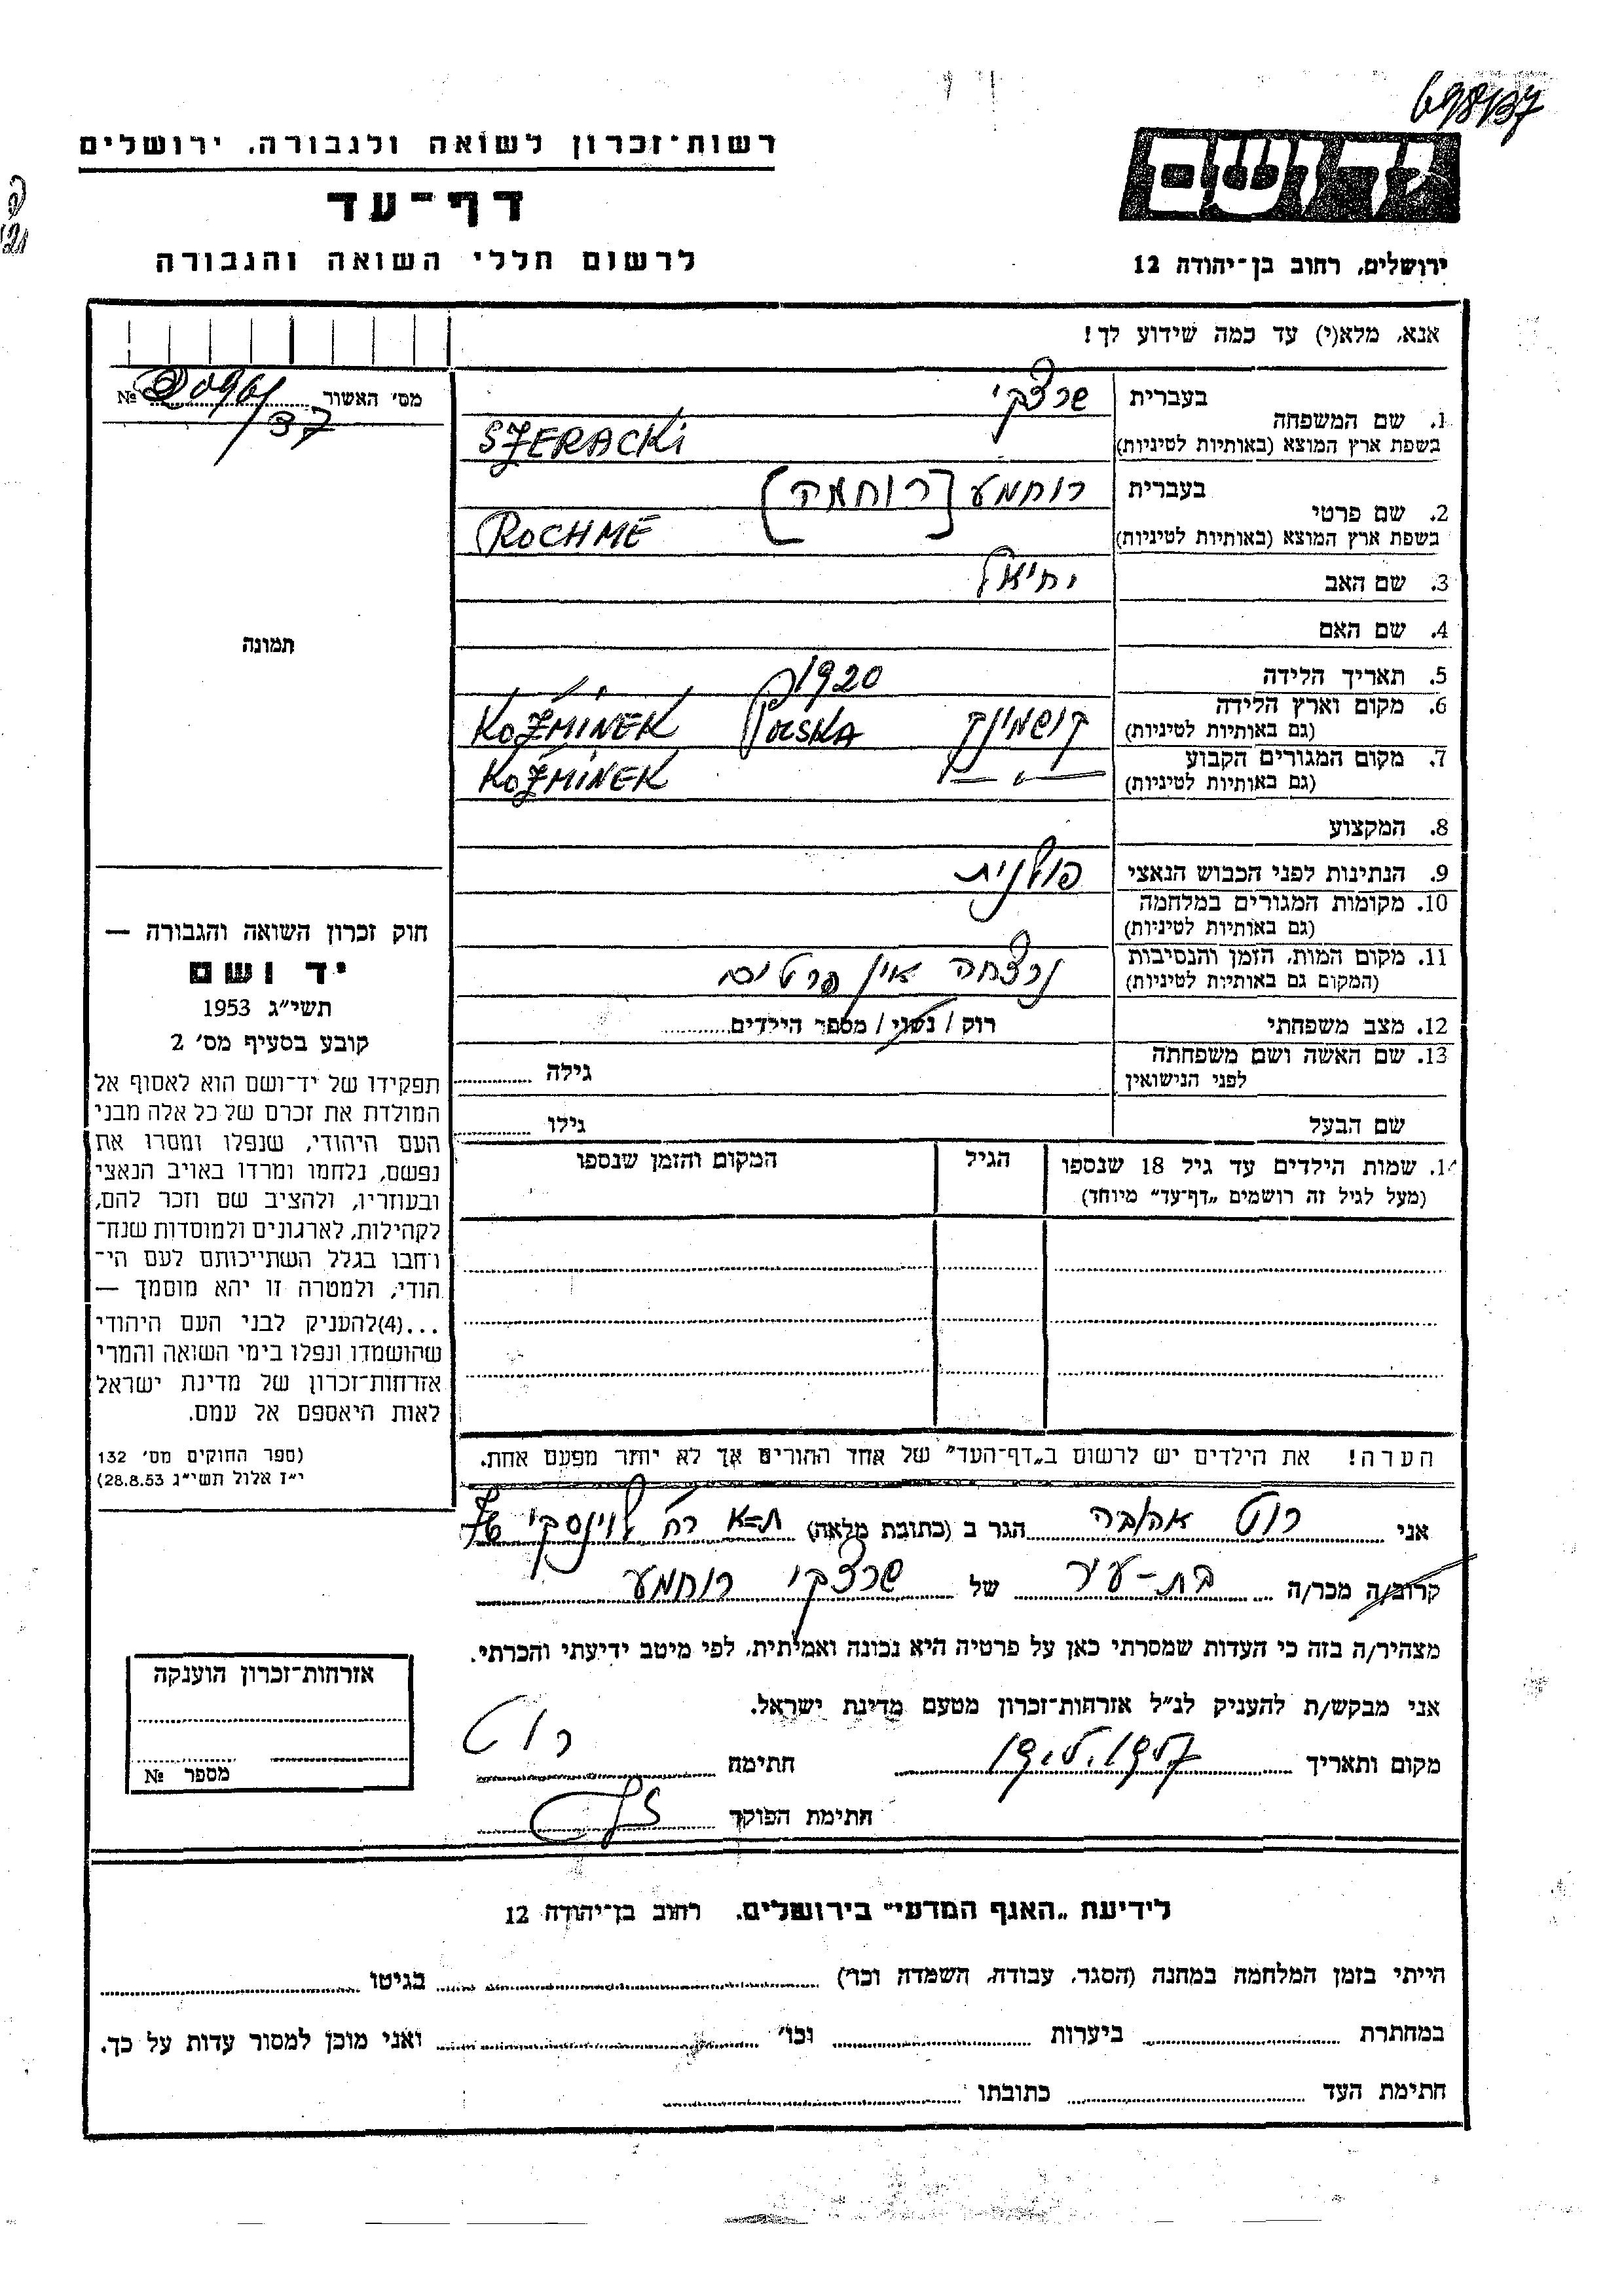 698137
רשות־זכרון לשואה ולגבורה, ירושלים
דף־עד
לרשום חללי השואה והגבורה
יד ושם
ירושלים, רחוב בן־יהודה 12
אנא, מלא(י) עד כמה שידוע לך!
מס׳ האשור № 2096/37
1. שם המשפחה בעברית שרצקי
בשפת ארץ המוצא (באותיות לטיניות) SZERACKI
2. שם פרטי בעברית רוחמע [רוחמה]
בשפת ארץ המוצא (באותיות לטיניות) ROCHME
3. שם האב יחיאל
4. שם האם
5. תאריך הלידה 1920
6. מקום וארץ הלידה (גם באותיות לטיניות) קושמינק POLSKA KOŹMINEK
7. מקום המגורים הקבוע (גם באותיות לטיניות) —"— KOŹMINEK
8. המקצוע
9. הנתינות לפני הכבוש הנאצי פולנית
10. מקומות המגורים במלחמה (גם באותיות לטיניות)
11. מקום המות, הזמן והנסיבות (המקום גם באותיות לטיניות) נרצחה אין פרטים
12. מצב משפחתי רוק / נשוי / מספר הילדים
13. שם האשה ושם משפחתה לפני הנישואין גילה
שם הבעל גילו
14. שמות הילדים עד גיל 18 שנספו (מעל לגיל זה רושמים „דף־עד" מיוחד) הגיל המקום והזמן שנספו
הערה! את הילדים יש לרשום ב„דף־העד" של אחד ההורים אך לא יותר מפעם אחת.
תמונה
חוק זכרון השואה והגבורה —
יד ושם
תשי״ג 1953
קובע בסעיף מס׳ 2
תפקידו של יד־ושם הוא לאסוף אל
המולדת את זכרם של כל אלה מבני
העם היהודי, שנפלו ומסרו את
נפשם, נלחמו ומרדו באויב הנאצי
ובעוזריו, ולהציב שם וזכר להם,
לקהילות, לארגונים ולמוסדות שנח־
רחבו בגלל השתייכותם לעם הי־
הודי, ולמטרה זו יהא מוסמך —
...(4)להעניק לבני העם היהודי
שהושמדו ונפלו בימי השואה והמרי
אזרחות־זכרון של מדינת ישראל
לאות היאספם אל עמם.
(ספר החוקים מס׳ 132
י״ז אלול תשי״ג 28.8.53)
אני רוט אהובה הגר ב (כתובת מלאה) ת=א רח לוינסקי 76
קרוב/ה מכר/ה בת-עיר של שרצקי רוחמע
מצהיר/ה בזה כי העדות שמסרתי כאן על פרטיה היא נכונה ואמיתית, לפי מיטב ידיעתי והכרתי.
אני מבקש/ת להעניק לנ״ל אזרחות־זכרון מטעם מדינת ישראל.
מקום ותאריך חתימה רוט
חתימת הפוקד
אזרחות־זכרון הוענקה
מספר №
לידיעת „האגף המדעי" בירושלים, רחוב בן־יהודה 12
הייתי בזמן המלחמה במחנה (הסגר, עבודה, השמדה וכו׳) בגיטו
במחתרת ביערות וכו׳ ואני מוכן למסור עדות על כך.
חתימת העד כתובתו